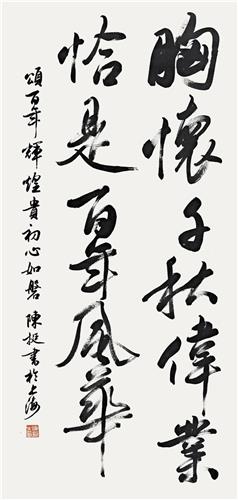 胸懷千秋偉業
恰是百年風華
頌百年輝煌貴初心如磐 陳挺書於上海